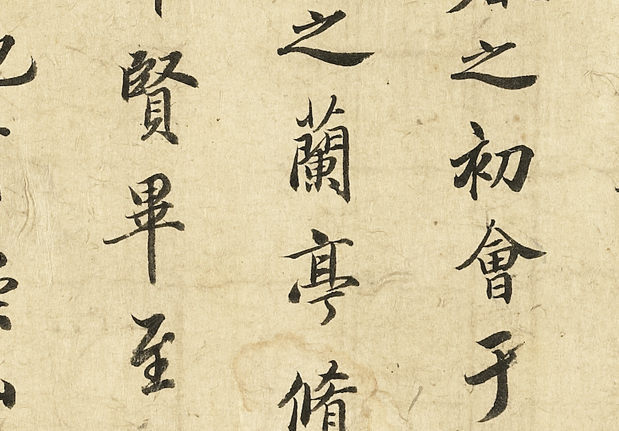 之初會于
之蘭亭脩
賢畢至